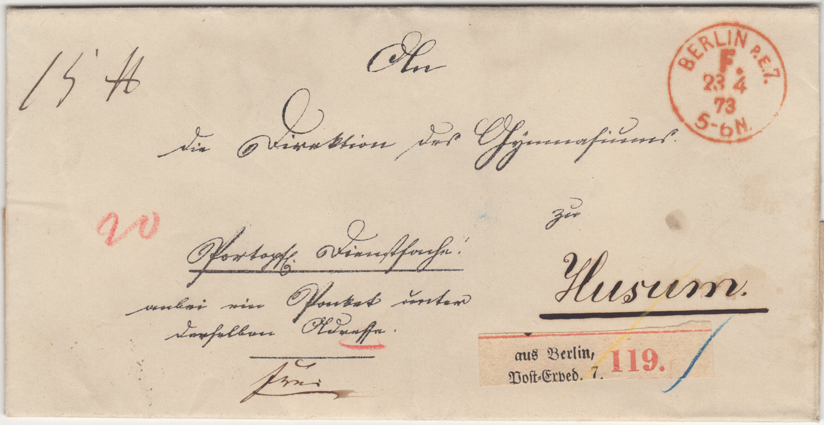 An
15 ℔
BERLIN P.E.7.
F.
23 4
73
5-6N.
die Direktion des Gymnasiums.
zu
20
Portopfl. Dienstsache!
Husum.
anbei ein Packet unter
derselben Adresse.
aus Berlin, 119.
Post-Exped. 7.
frei